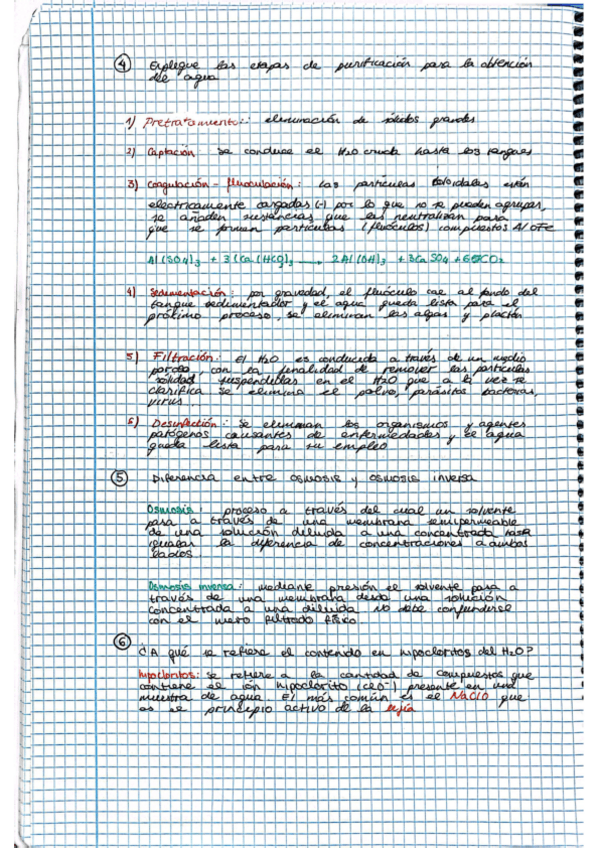 ④ Explique las etapas de purificación para la obtención
de agua
1) Pretratamiento: eliminación de sólidos grandes
2) Captación: Se conduce el H2O cruda hasta los tanques
3) Coagulación - fluoculación: Las partículas coloidales están
electricamente cargadas (-) por lo que no se pueden agrupar,
se añaden sustancias que las neutralizan para
que se formen partículas (fluóculos) compuestos Al o Fe
Al(SO4)3 + 3(Ca(HCO)3 → 2Al(OH)3 + 3CaSO4 + 6CO2
4) Sedimentación: por gravedad, el fluóculo cae al fondo del
tanque sedimentador y el agua queda lista para el
próximo proceso, se eliminan las algas y plancton
5) Filtración: El H2O es conducida a través de un medio
poroso, con la finalidad de remover las partículas
solidad suspendidas en el H2O que a la vez se
clarifica se elimina el polvo, parásitos bacterias,
virus
6) Desinfección: Se eliminan los organismos y agentes
patógenos causantes de enfermedades y el agua
queda lista para su empleo
⑤ Diferencia entre osmosis y osmosis inversa
Osmosis: proceso a través del cual un solvente
pasa a través de una membrana semipermeable
de una solución diluida a una concentrada hasta
igualar la diferencia de concentraciones a ambos
lados.
Osmosis inversa: mediante presión el solvente pasa a
través de una membrana desde una solución
concentrada a una diluida no debe confundirse
con el mero filtrado físico
⑥ ¿A qué se refiere el contenido en hipocloritos del H2O?
hipocloritos: Se refiere a la cantidad de compuestos que
contiene el ión hipoclorito (ClO-) presente en una
muestra de agua El más común es el NaClO que
es el principio activo de la lejía